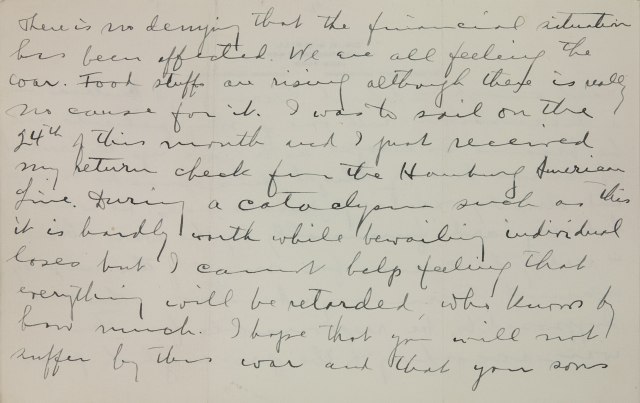 There is no denying that the financial situation
has been affected. We are all feeling the
war. Food stuffs are rising although there is really
no cause for it. I was to sail on the
24th of this month and I just received
my return check from the Hamburg American
Line. During a cataclysm such as this
it is hardly worth while bewailing individual
loses but I cannot help feeling that
everything will be retarded, who knows by
how much. I hope that you will not
suffer by this war and that your sons